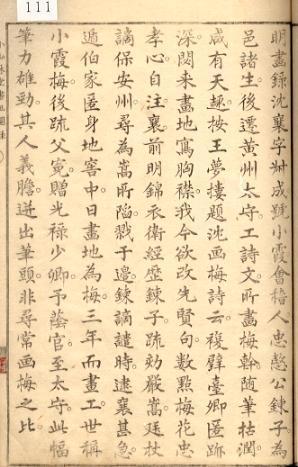 111
明畫錄沈襄字叔成號小霞會稽人忠愍公鍊子為
邑諸生後遷黃州太守工詩文所畫梅榦随筆枯潤。
咸有天趣。按王夢樓題沈画梅詩云複壁臺卿匿跡
深。閑来畫地寫胸襟。我今欲改先賢句。數點梅花忠
孝心。自注。襄前明錦衣衛經歷鍊子。疏劾嚴嵩廷杖
謫保安州。尋為嵩所陷。戮于邊。鍊謫譴時。逮襄甚急。
遁伯家匿身地窖中。日畫地為梅。三年而畫工世稱
小霞梅。後疏父寃。贈光禄少卿。予蔭官至太守。此幅
筆力雄勁。其人義膽。迸出筆頭。非尋常画梅之比。